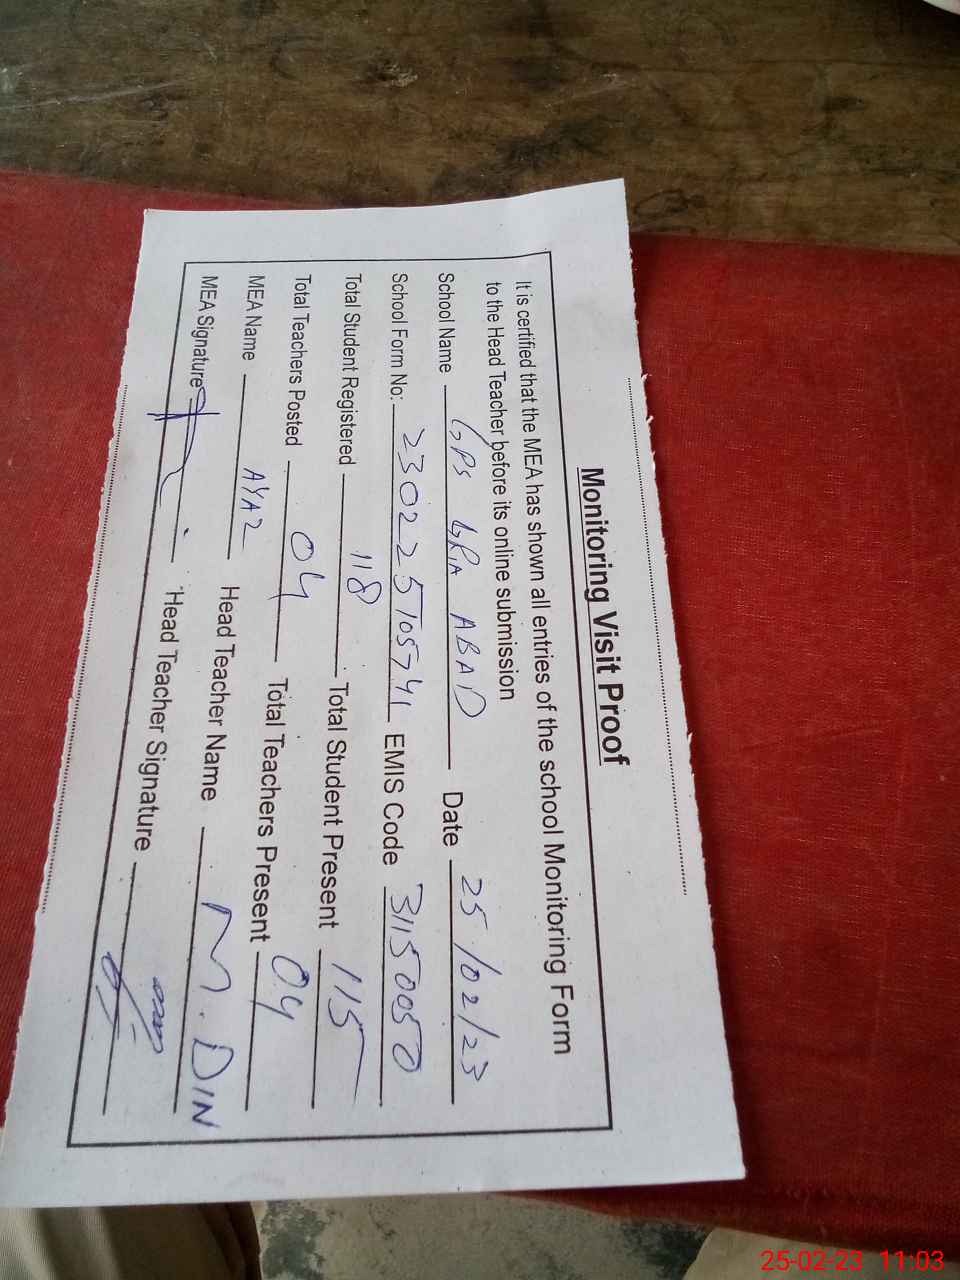 Monitoring Visit Proof
It is certified that the MEA has shown all entries of the school Monitoring Form
to the Head Teacher before its online submission
School Name GPS GRiA ABAD Date 25/02/23
School Form No: 230225105741 EMIS Code 31150050
Total Student Registered 118 Total Student Present 115
Total Teachers Posted 04 Total Teachers Present 04
MEA Name AYAZ Head Teacher Name M. DIN
MEA Signature Head Teacher Signature
25-02-23 11:03